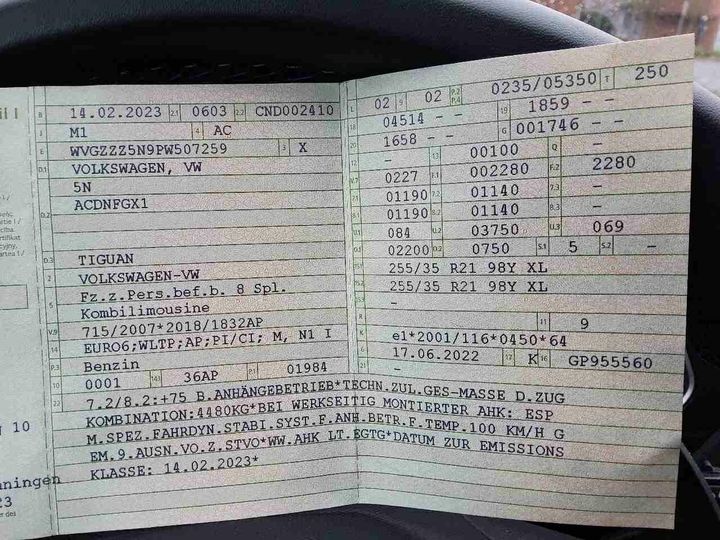 il I
B 14.02.2023 2.1 0603 2.2 CND002410
J M1 4 AC
E WVGZZZ5N9PW507259 3 X
D.1 VOLKSWAGEN, VW
5N
D.2 ACDNFGX1
D.3 TIGUAN
2 VOLKSWAGEN-VW
5 Fz.z.Pers.bef.b. 8 Spl.
Kombilimousine
V.9 715/2007*2018/1832AP
14 EURO6;WLTP;AP;PI/CI; M, N1 I
P.3 Benzin
10 0001 14.1 36AP P.1 01984
L 02 9 02 P.2 P.4 0235/05350 T 250
18 04514 – – 19 1859 – –
20 1658 – – G 001746 – –
12 – 13 00100 Q –
V.7 0227 F.1 002280 F.2 2280
7.1 01190 7.2 01140 7.3 –
8.1 01190 8.2 01140 8.3 –
U.1 084 U.2 03750 U.3 069
O.1 02200 O.2 0750 S.1 5 S.2 –
255/35 R21 98Y XL
255/35 R21 98Y XL
–
R 11 9
K e1*2001/116*0450*64
6 17.06.2022 17 K 16 GP955560
22 7.2/8.2:+75 B.ANHÄNGEBETRIEB*TECHN.ZUL.GES-MASSE D.ZUG
KOMBINATION:4480KG*BEI WERKSEITIG MONTIERTER AHK: ESP
M.SPEZ.FAHRDYN.STABI.SYST.F.ANH.BETR.F.TEMP.100 KM/H G
EM.9.AUSN.VO.Z.STVO*WW.AHK LT.EGTG*DATUM ZUR EMISSIONS
KLASSE: 14.02.2023*
10
nningen
23